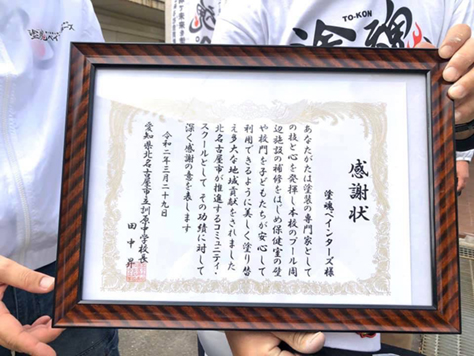 TO-KON
塗魂
感謝状
塗魂ペインターズ様
あなたがたは塗装の専門家として
の技と心を発揮し本校のプール周
辺施設の補修をはじめ保健室の壁
や校門を子どもたちが安心して
利用できるように美しく塗り替
え多大な地域貢献をされました
北名古屋市が推進するコミュニティ・
スクールとして その功績に対して
深く感謝の意を表します
令和二年三月二十九日
愛知県北名古屋市立訓原中学校長
田中昇